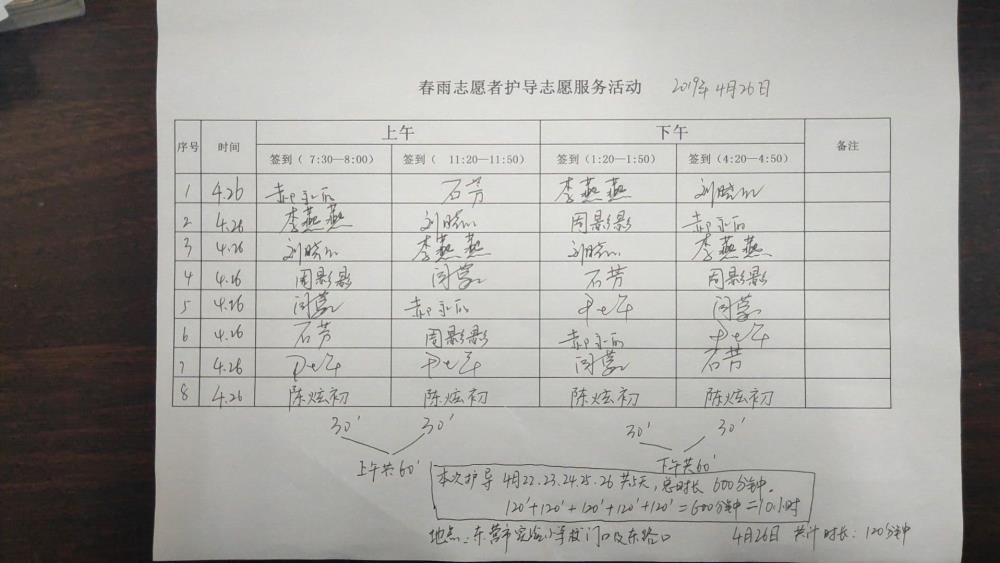 春雨志愿者护导志愿服务活动 2019年4月26日
上午 下午
序号 时间 签到（ 7:30—8:00） 签到（ 11:20—11:50） 签到（1:20—1:50） 签到（4:20—4:50） 备注
1 4.26 石芳 李燕燕 刘晓
2 4.26 李燕燕 刘晓 周影影
3 4.26 刘晓 李燕燕 刘晓 李燕燕
4 4.26 周影影 闫蒙 石芳 周影影
5 4.26 闫蒙 闫蒙
6 4.26 石芳 周影影
7 4.26 闫蒙 石芳
8 4.26 陈炫初 陈炫初 陈炫初 陈炫初
30' 30' 30' 30'
上午共60' 下午共60'
本次护导 4月22.23.24.25.26 共5天，总时长 600分钟。
120'+120'+120'+120'+120'=600分钟=10小时
地点：东营市实验小学校门口及东路口 4月26日 共计时长：120分钟